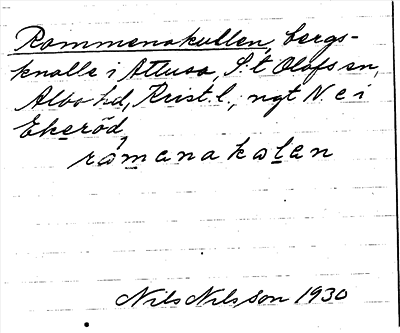 Rammenakullen, bergs-
knalle i Attusa, S:t Olofs sn,
Albo hd, Krist. l., ngt N. e i
Ekeröd,
ramenakalan
Nils Nilsson 1930